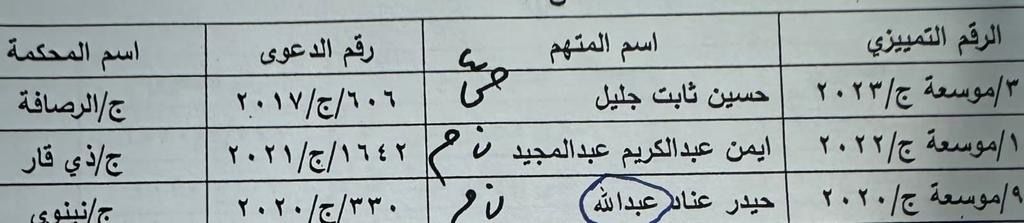 الرقم التمييزي اسم المتهم رقم الدعوى اسم المحكمة
٣/موسعة ج/٢٠٢٣ حسين ثابت جليل ٦٠٦/ج/٢٠١٧ ج/الرصافة
١/موسعة ج/٢٠٢٢ ايمن عبدالكريم عبدالمجيد ١٦٤٢/ج/٢٠٢١ ج/ذي قار
٩/موسعة ج/٢٠٢٠ حيدر عناد عبدالله ٣٣٠/ج/٢٠٢٠ ج/نينوى